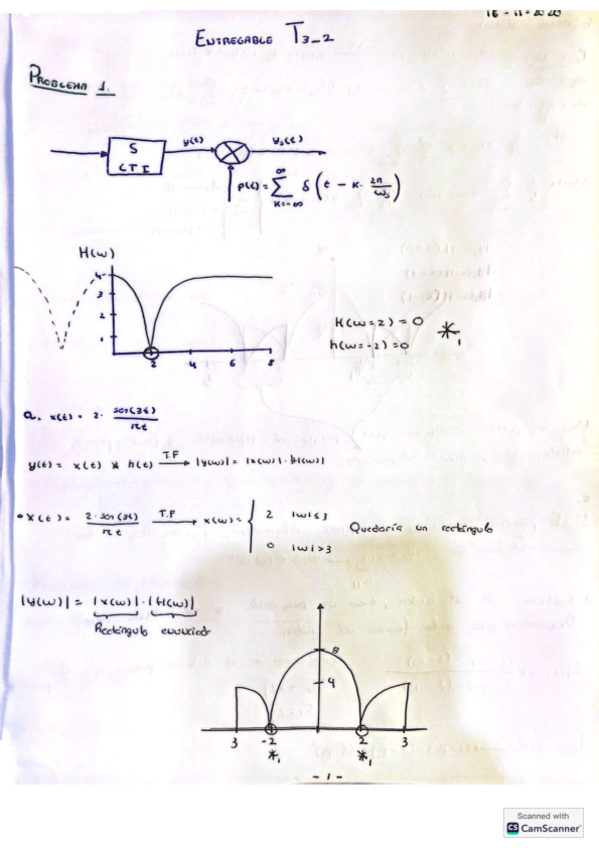 16-11-2020
ENTREGABLE T3_2
PROBLEMA 1.
S
CTI
y(t)
ys(t)
p(t) = ∑ δ(t - k · 2π/ωs)
∞
k=-∞
H(ω)
4
3
2
1
2 4 6 8
H(ω=2) = 0
h(ω=-2) = 0
*1
a. x(t) = 2 · sen(3t)/πt
y(t) = x(t) * h(t) T.F → |y(ω)| = |x(ω)| · |H(ω)|
• x(t) = 2·sen(3t)/πt T.F → x(ω) = { 2 |ω| ≤ 3
0 |ω| > 3
Quedaría un rectángulo
|y(ω)| = |x(ω)| · |H(ω)|
Rectángulo enunciado
8
4
3 -2 2 3
*1 *1
- 1 -
Scanned with
CS CamScanner